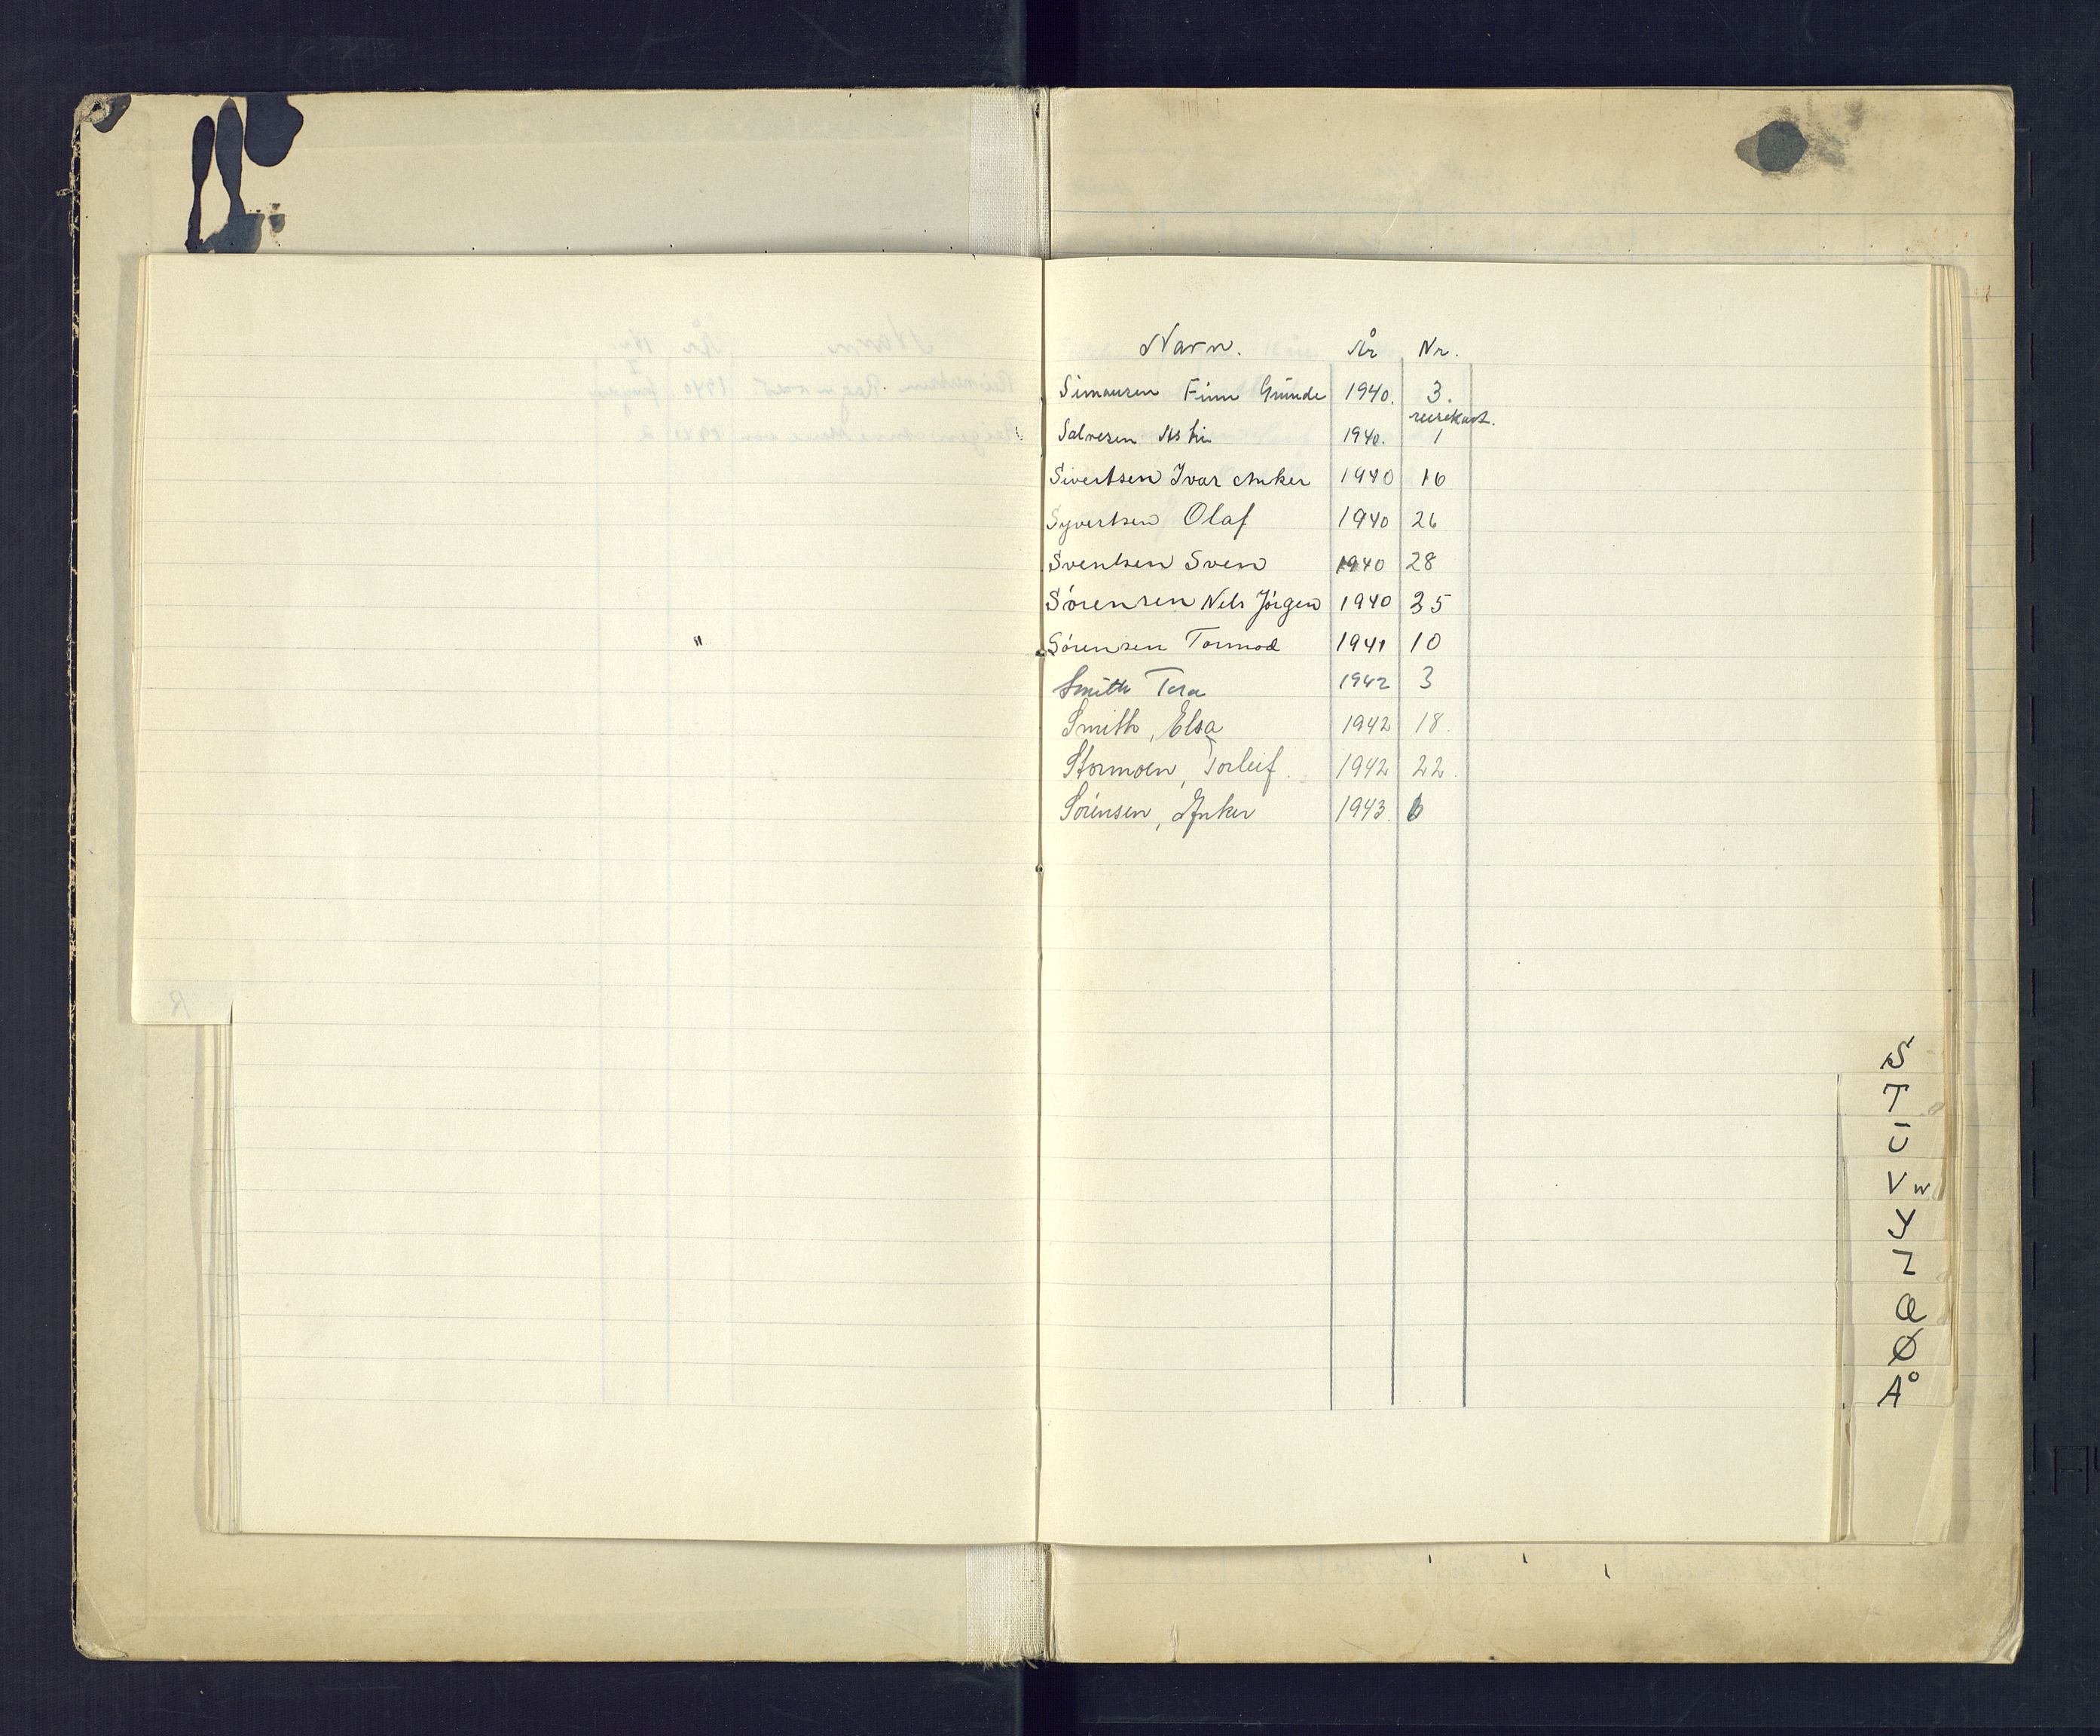 Navn. År Nr.
Simonsen Finn Gunde 1940. 3.
Salvesen 1940. 1
Sivertsen Ivar Anker 1940 16
Syvertsen Olaf 1940 26
Sventsen Sven 1940 28
Sörensen Nels Jörgen 1940 35
Sörensen Tormod 1941 10
Smith Tora 1942 3
Smith, Elsa 1942 18.
Stormoen, Torleif. 1942 22.
Sörensen, Anker 1943. 6
"
S
T
U
V W
Y
Z
Æ
Ø
Å